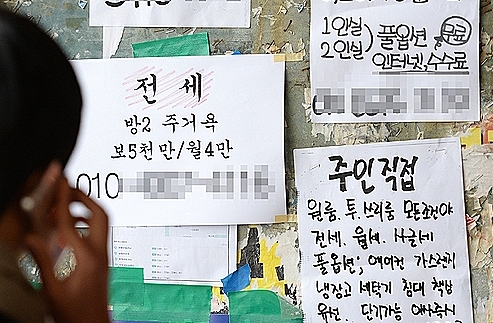 1인실
2인실
풀옵션
무료
인터넷,수수료
전세
방2 주거욕
보5천만/월4만
010
주인직접
원룸, 투, 쓰리룸
전세, 월세, 사글세
풀옵션; 에어컨 가스렌지
냉장고 세탁기 침대 책상
단기가능